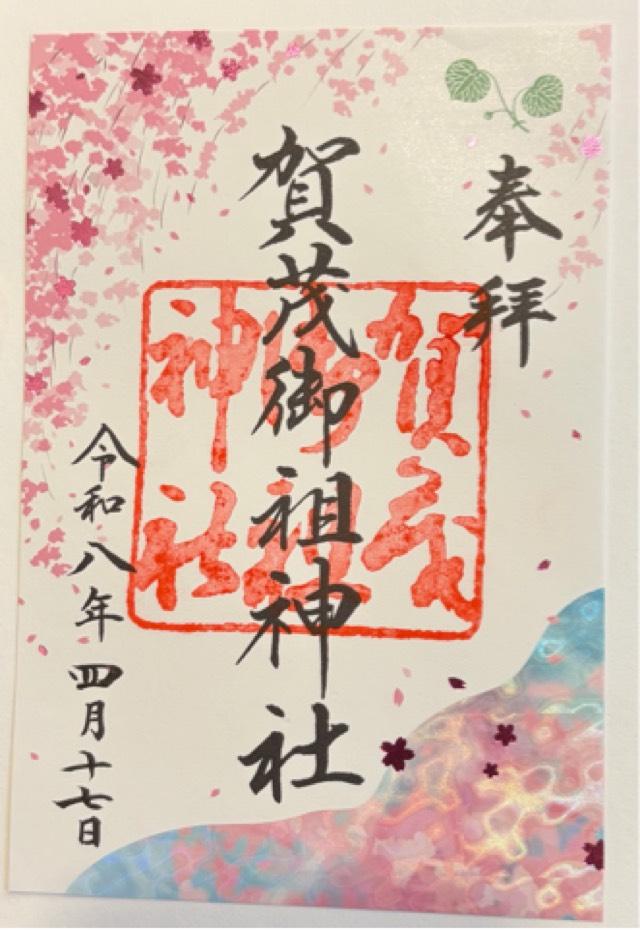 奉拝
賀茂御祖神社
賀茂
御祖
神社
令和八年四月十七日